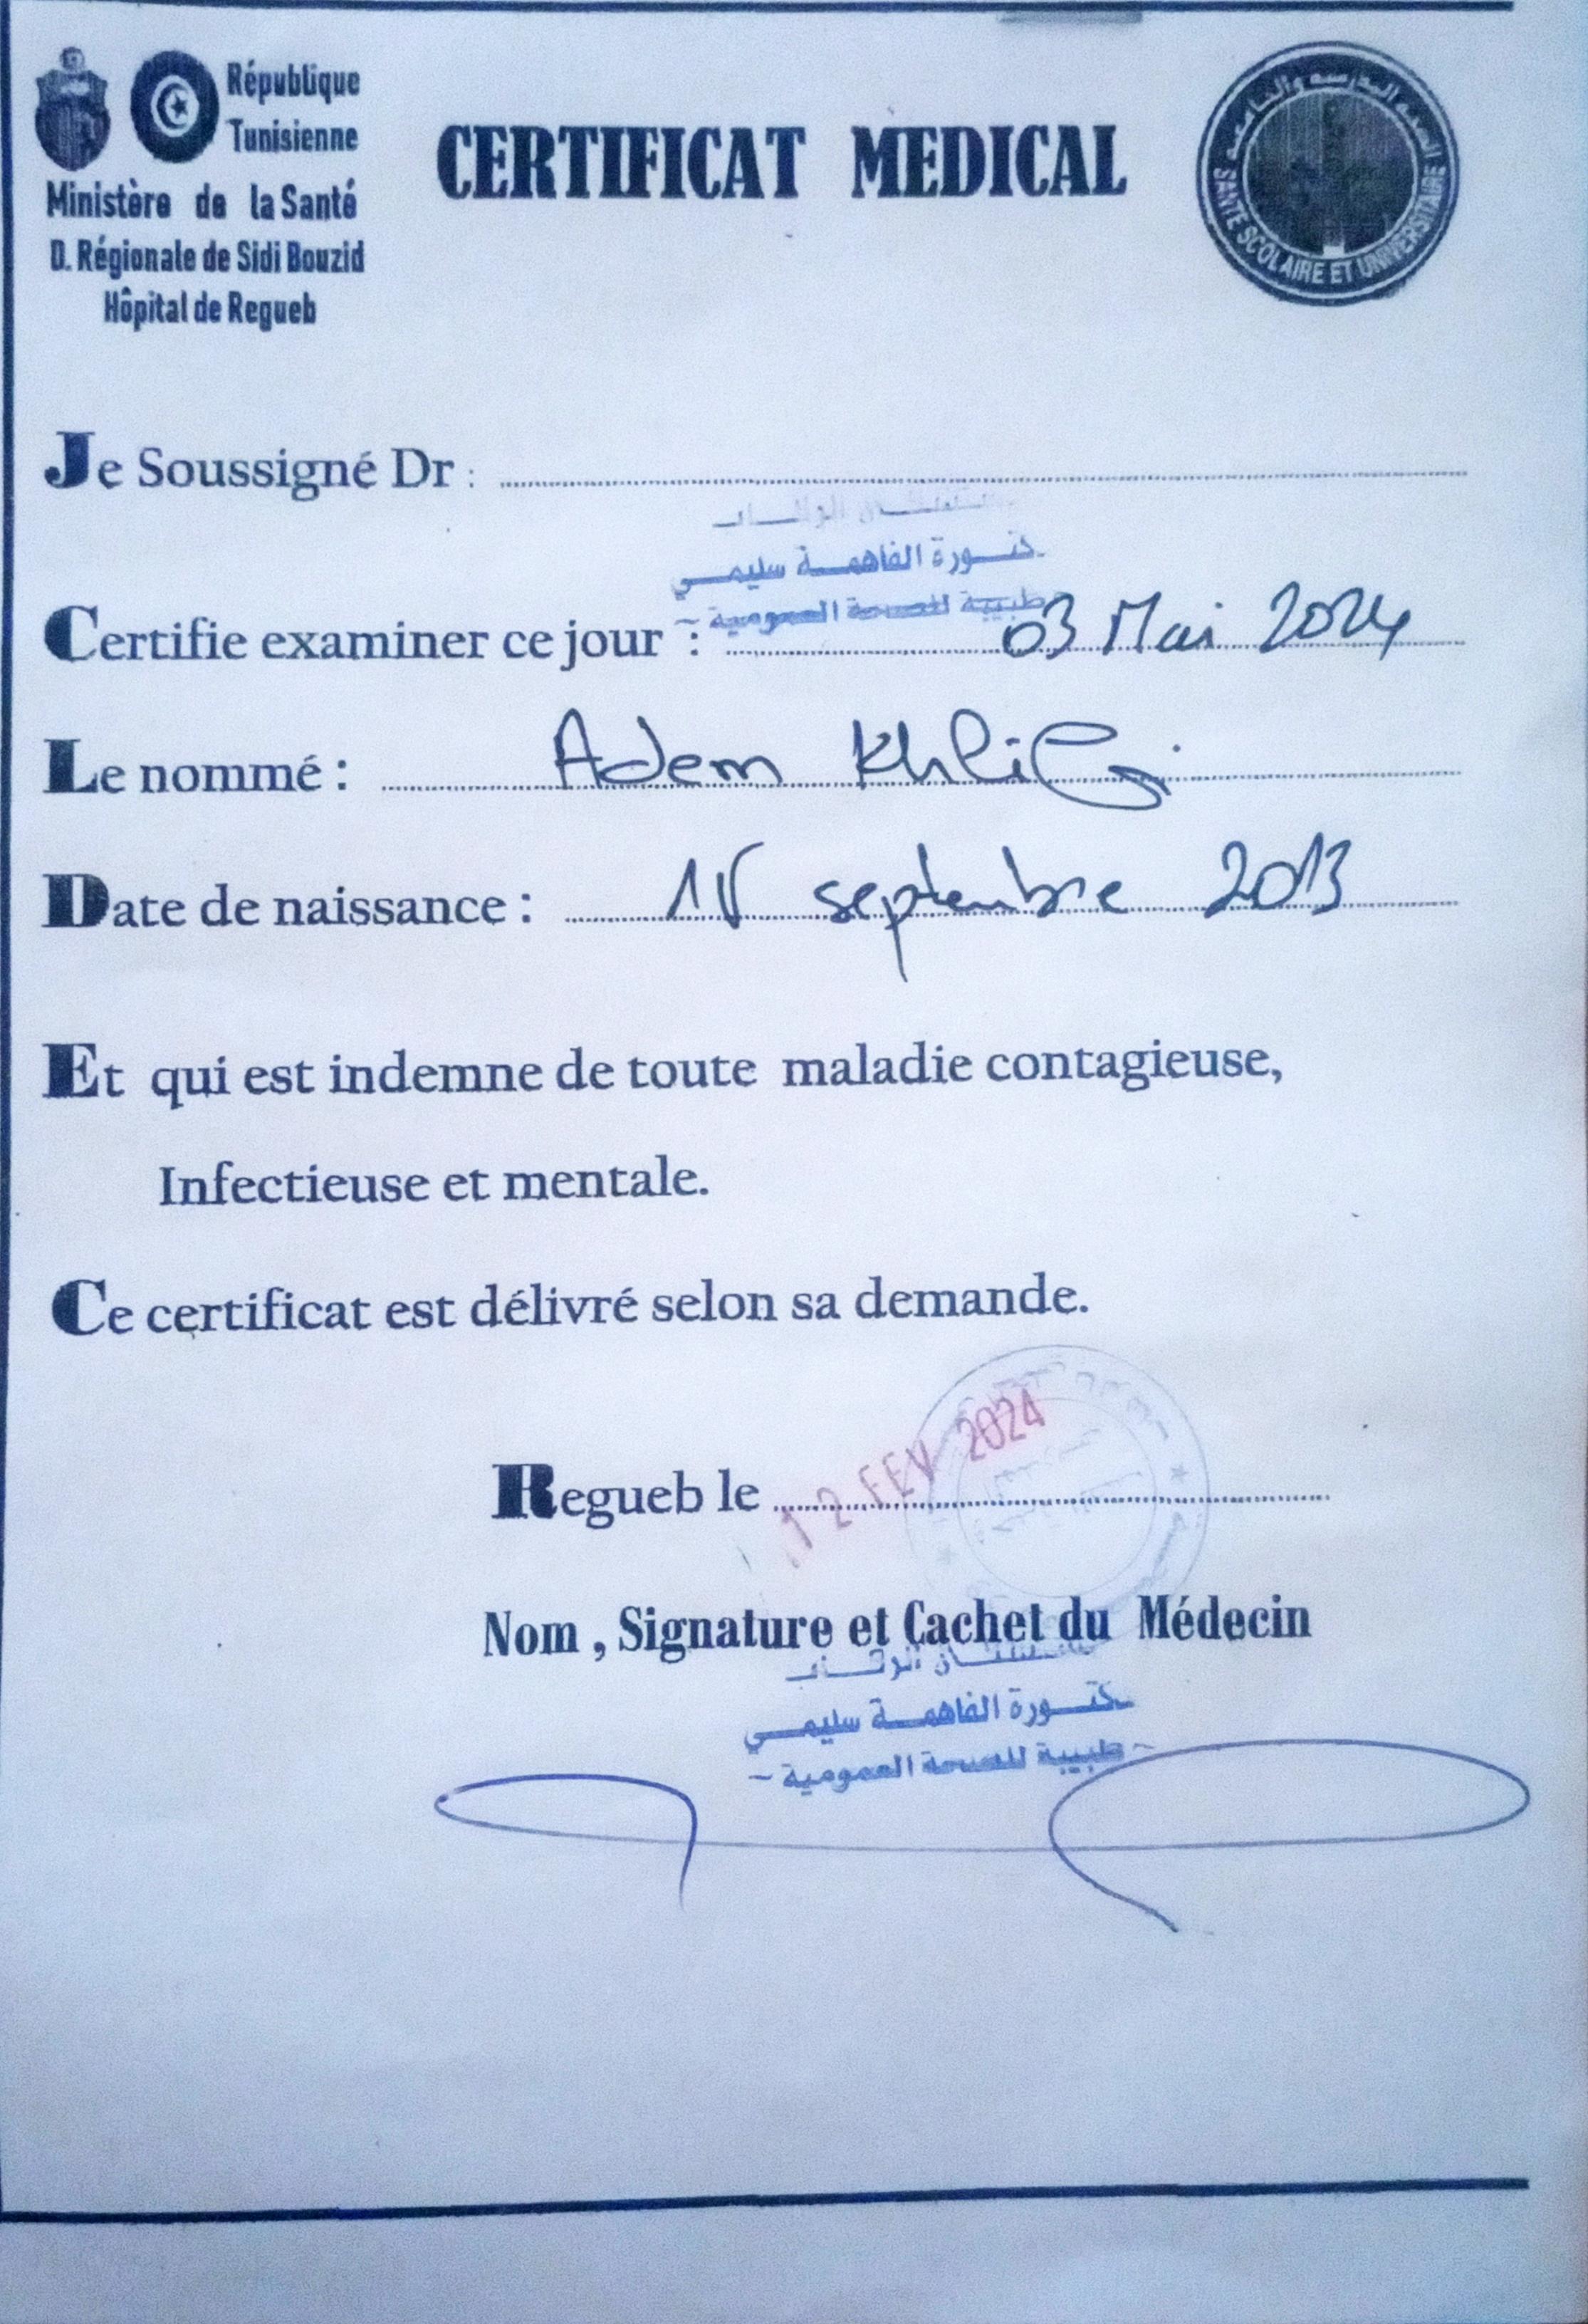 République
Tunisienne
Ministère de la Santé
D. Régionale de Sidi Bouzid
Hôpital de Regueb
CERTIFICAT MEDICAL
SANTE SCOLAIRE ET UNIVERSITAIRE
Je Soussigné Dr :
كتورة الفاهمة سليمي
طبيبة للصحة العمومية -
Certifie examiner ce jour : 03 Mai 2024
Le nommé : Adem Khlifi
Date de naissance : 15 septembre 2013
Et qui est indemne de toute maladie contagieuse,
Infectieuse et mentale.
Ce certificat est délivré selon sa demande.
Regueb le 12 FEV 2024
Nom , Signature et Cachet du Médecin
كتورة الفاهمة سليمي
- طبيبة للصحة العمومية -